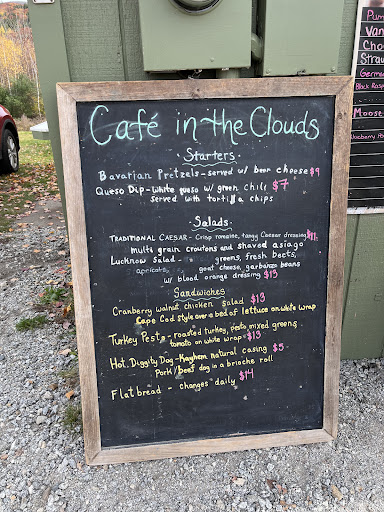 Café in the Clouds
Starters
Bavarian Pretzels - served w/ beer cheese $9
Queso Dip - white queso w/ green chili $7
served with tortilla chips
Salads
TRADITIONAL CAESAR - Crisp romaine, tangy Caesar dressing
multi grain croutons and shaved asiago
Lucknow Salad - greens, fresh beets,
apricots, goat cheese, garbanzo beans
w/ blood orange dressing $13
Sandwiches
Cranberry walnut chicken salad $13
Cape Cod style over a bed of lettuce on white wrap
Turkey Pesto - roasted turkey, pesto, mixed greens,
tomato on white wrap $13
Hot Diggity Dog - Kayem natural casing $5
Pork/beef dog in a brioche roll
Flatbread - changes daily $14
Pum
Van
Cho
Straw
German
Black Rasp
Moose